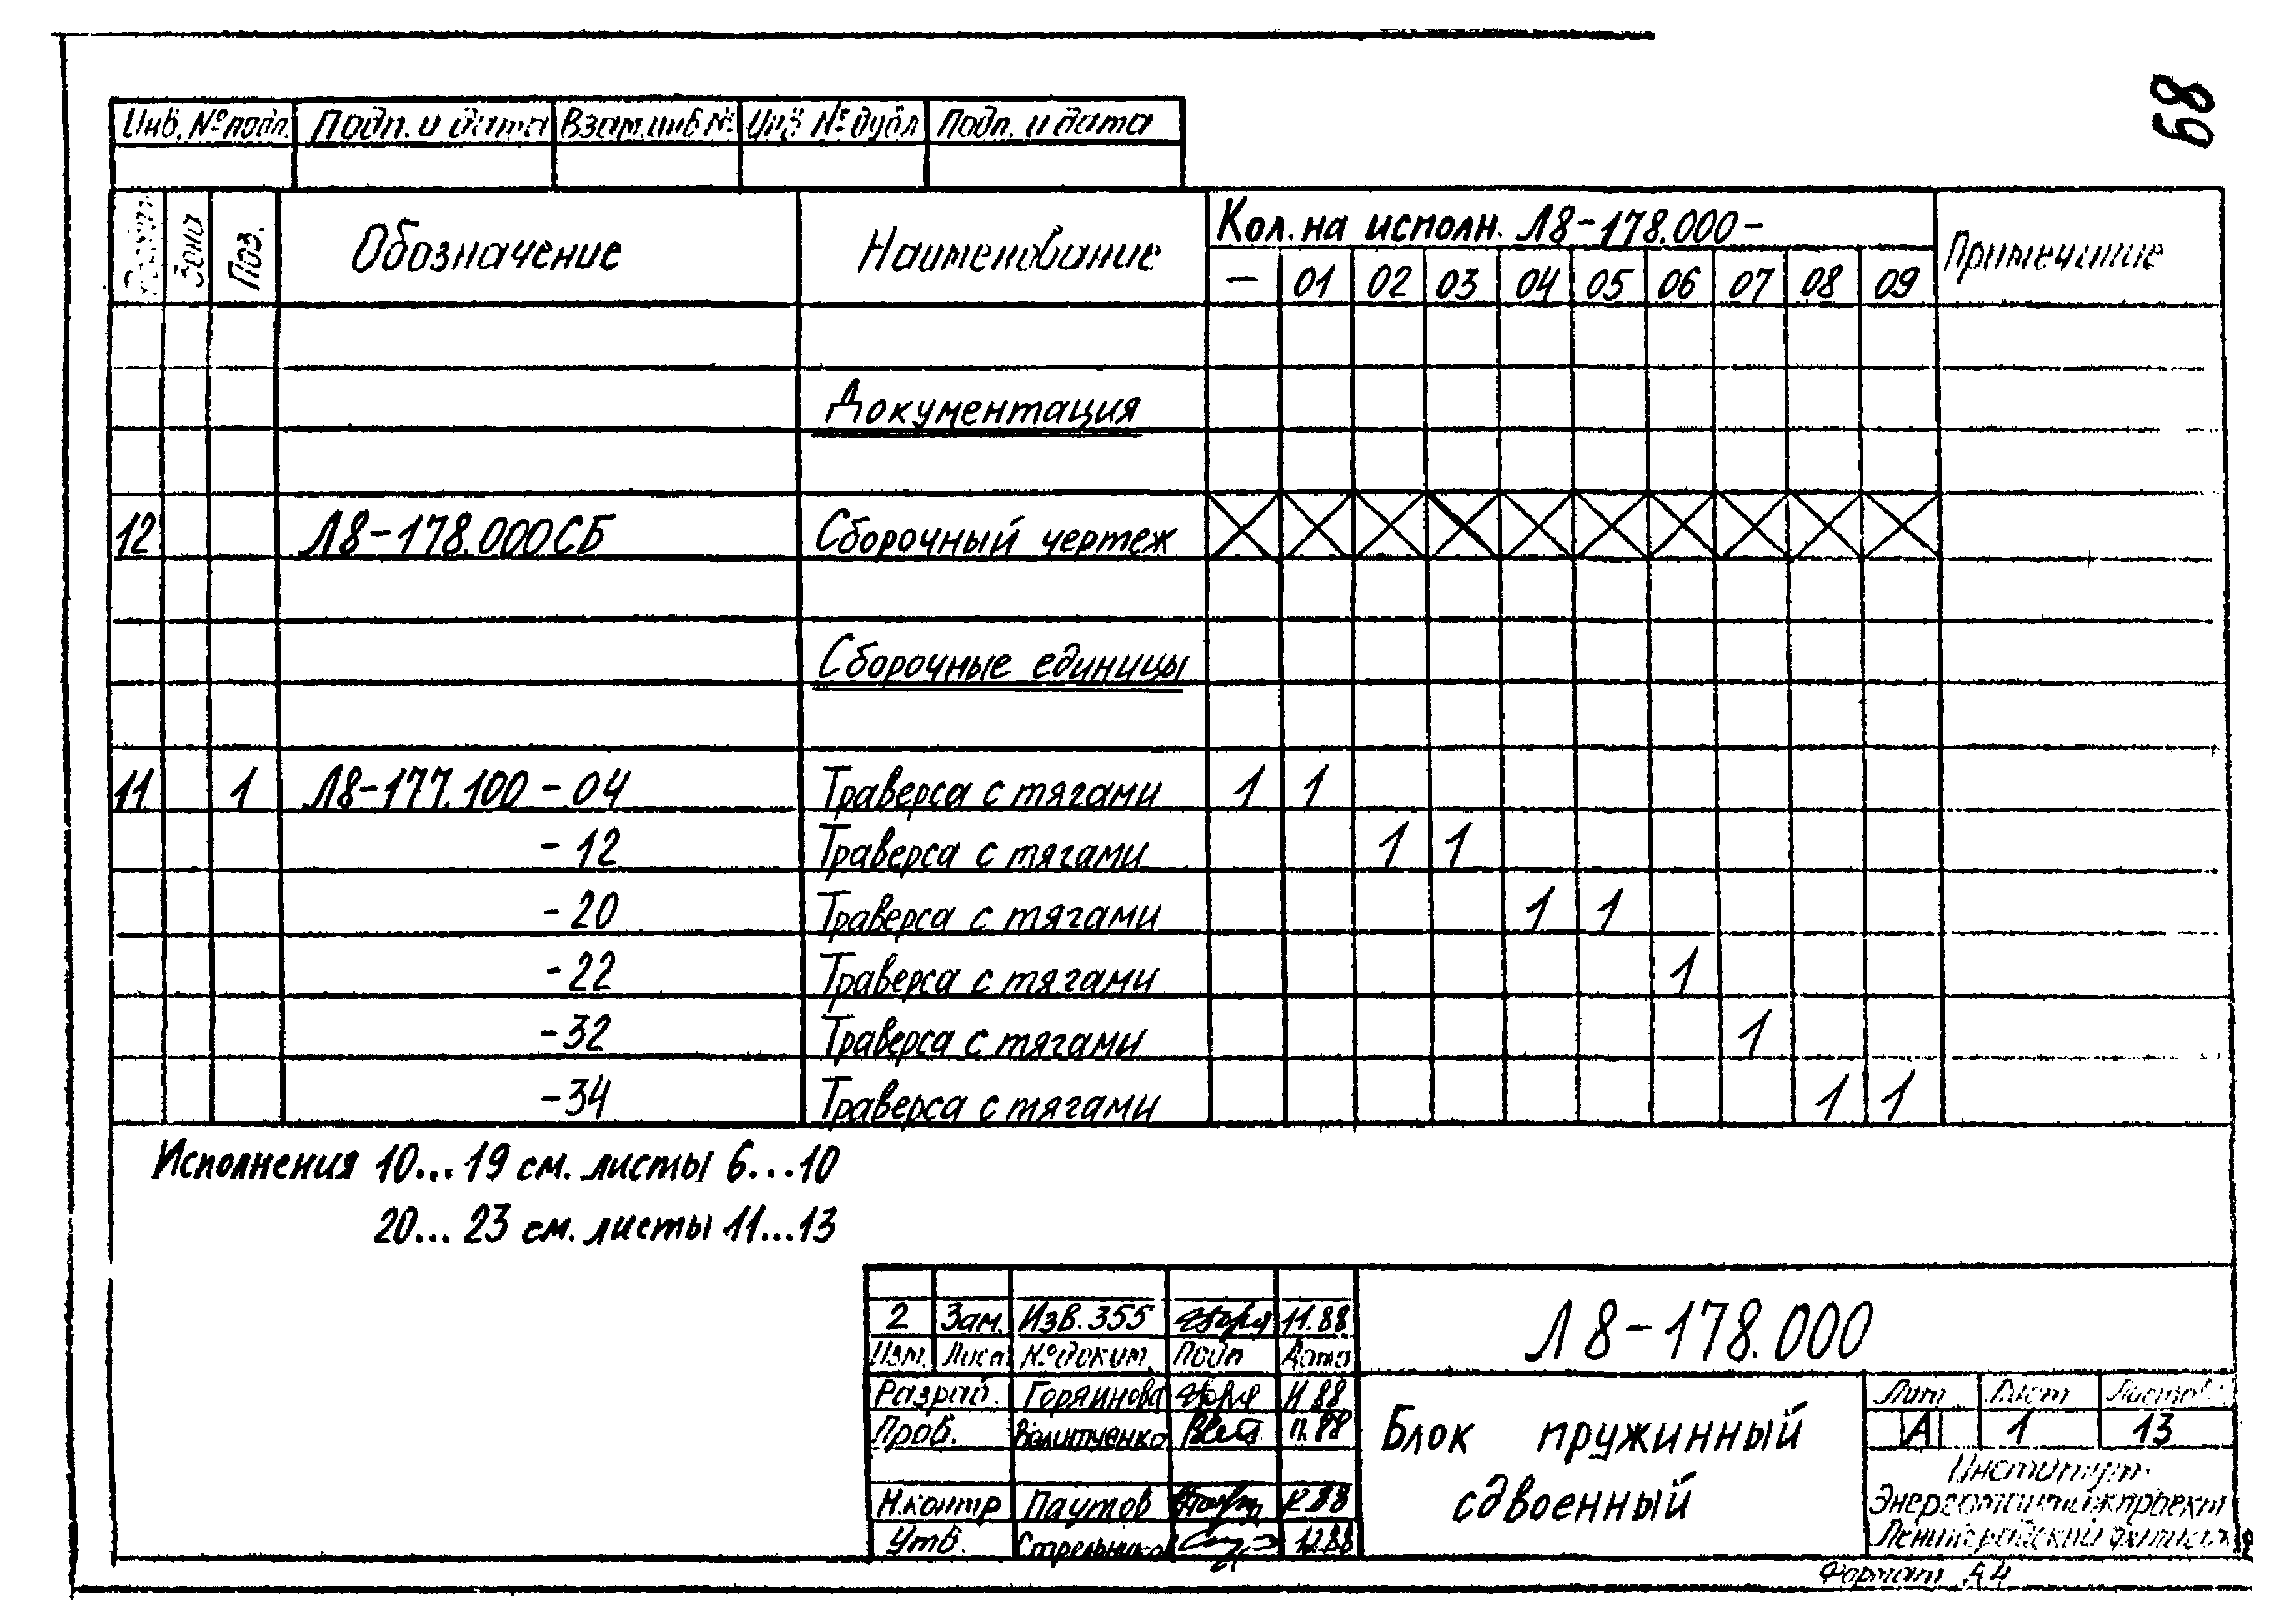 68
Инв. № подл. Подп. и дата Взам. инв № Инв № дубл Подп. и дата
Формат Зона Поз. Обозначение Наименование Кол. на исполн. Л8-178.000- Примечание
— 01 02 03 04 05 06 07 08 09
Документация
12 Л8-178.000СБ Сборочный чертеж
Сборочные единицы
11 1 Л8-177.100-04 Траверса с тягами 1 1
-12 Траверса с тягами 1 1
-20 Траверса с тягами 1 1
-22 Траверса с тягами 1
-32 Траверса с тягами 1
-34 Траверса с тягами 1 1
Исполнения 10...19 см. листы 6...10
20...23 см. листы 11...13
2 Зам. Изв. 355 11.88
Изм. Лист № докум. Подп Дата
Л8-178.000
Разраб. Горяинова 11 88
Пров. 11.88
Н.контр Паутов 12.88
Утв. 12.88
Блок пружинный
сдвоенный
Лит Лист Листов
А 1 13
Институт
Энергомонтажпроект
Ленинградский филиал
Формат А4